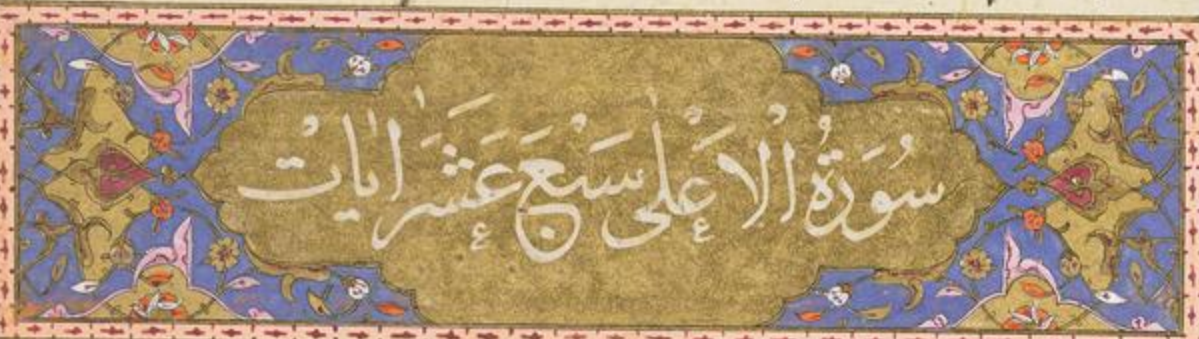 سُورَةُ الْاَعْلٰى سَبْعَ عَشَرَ اٰيَاتْ